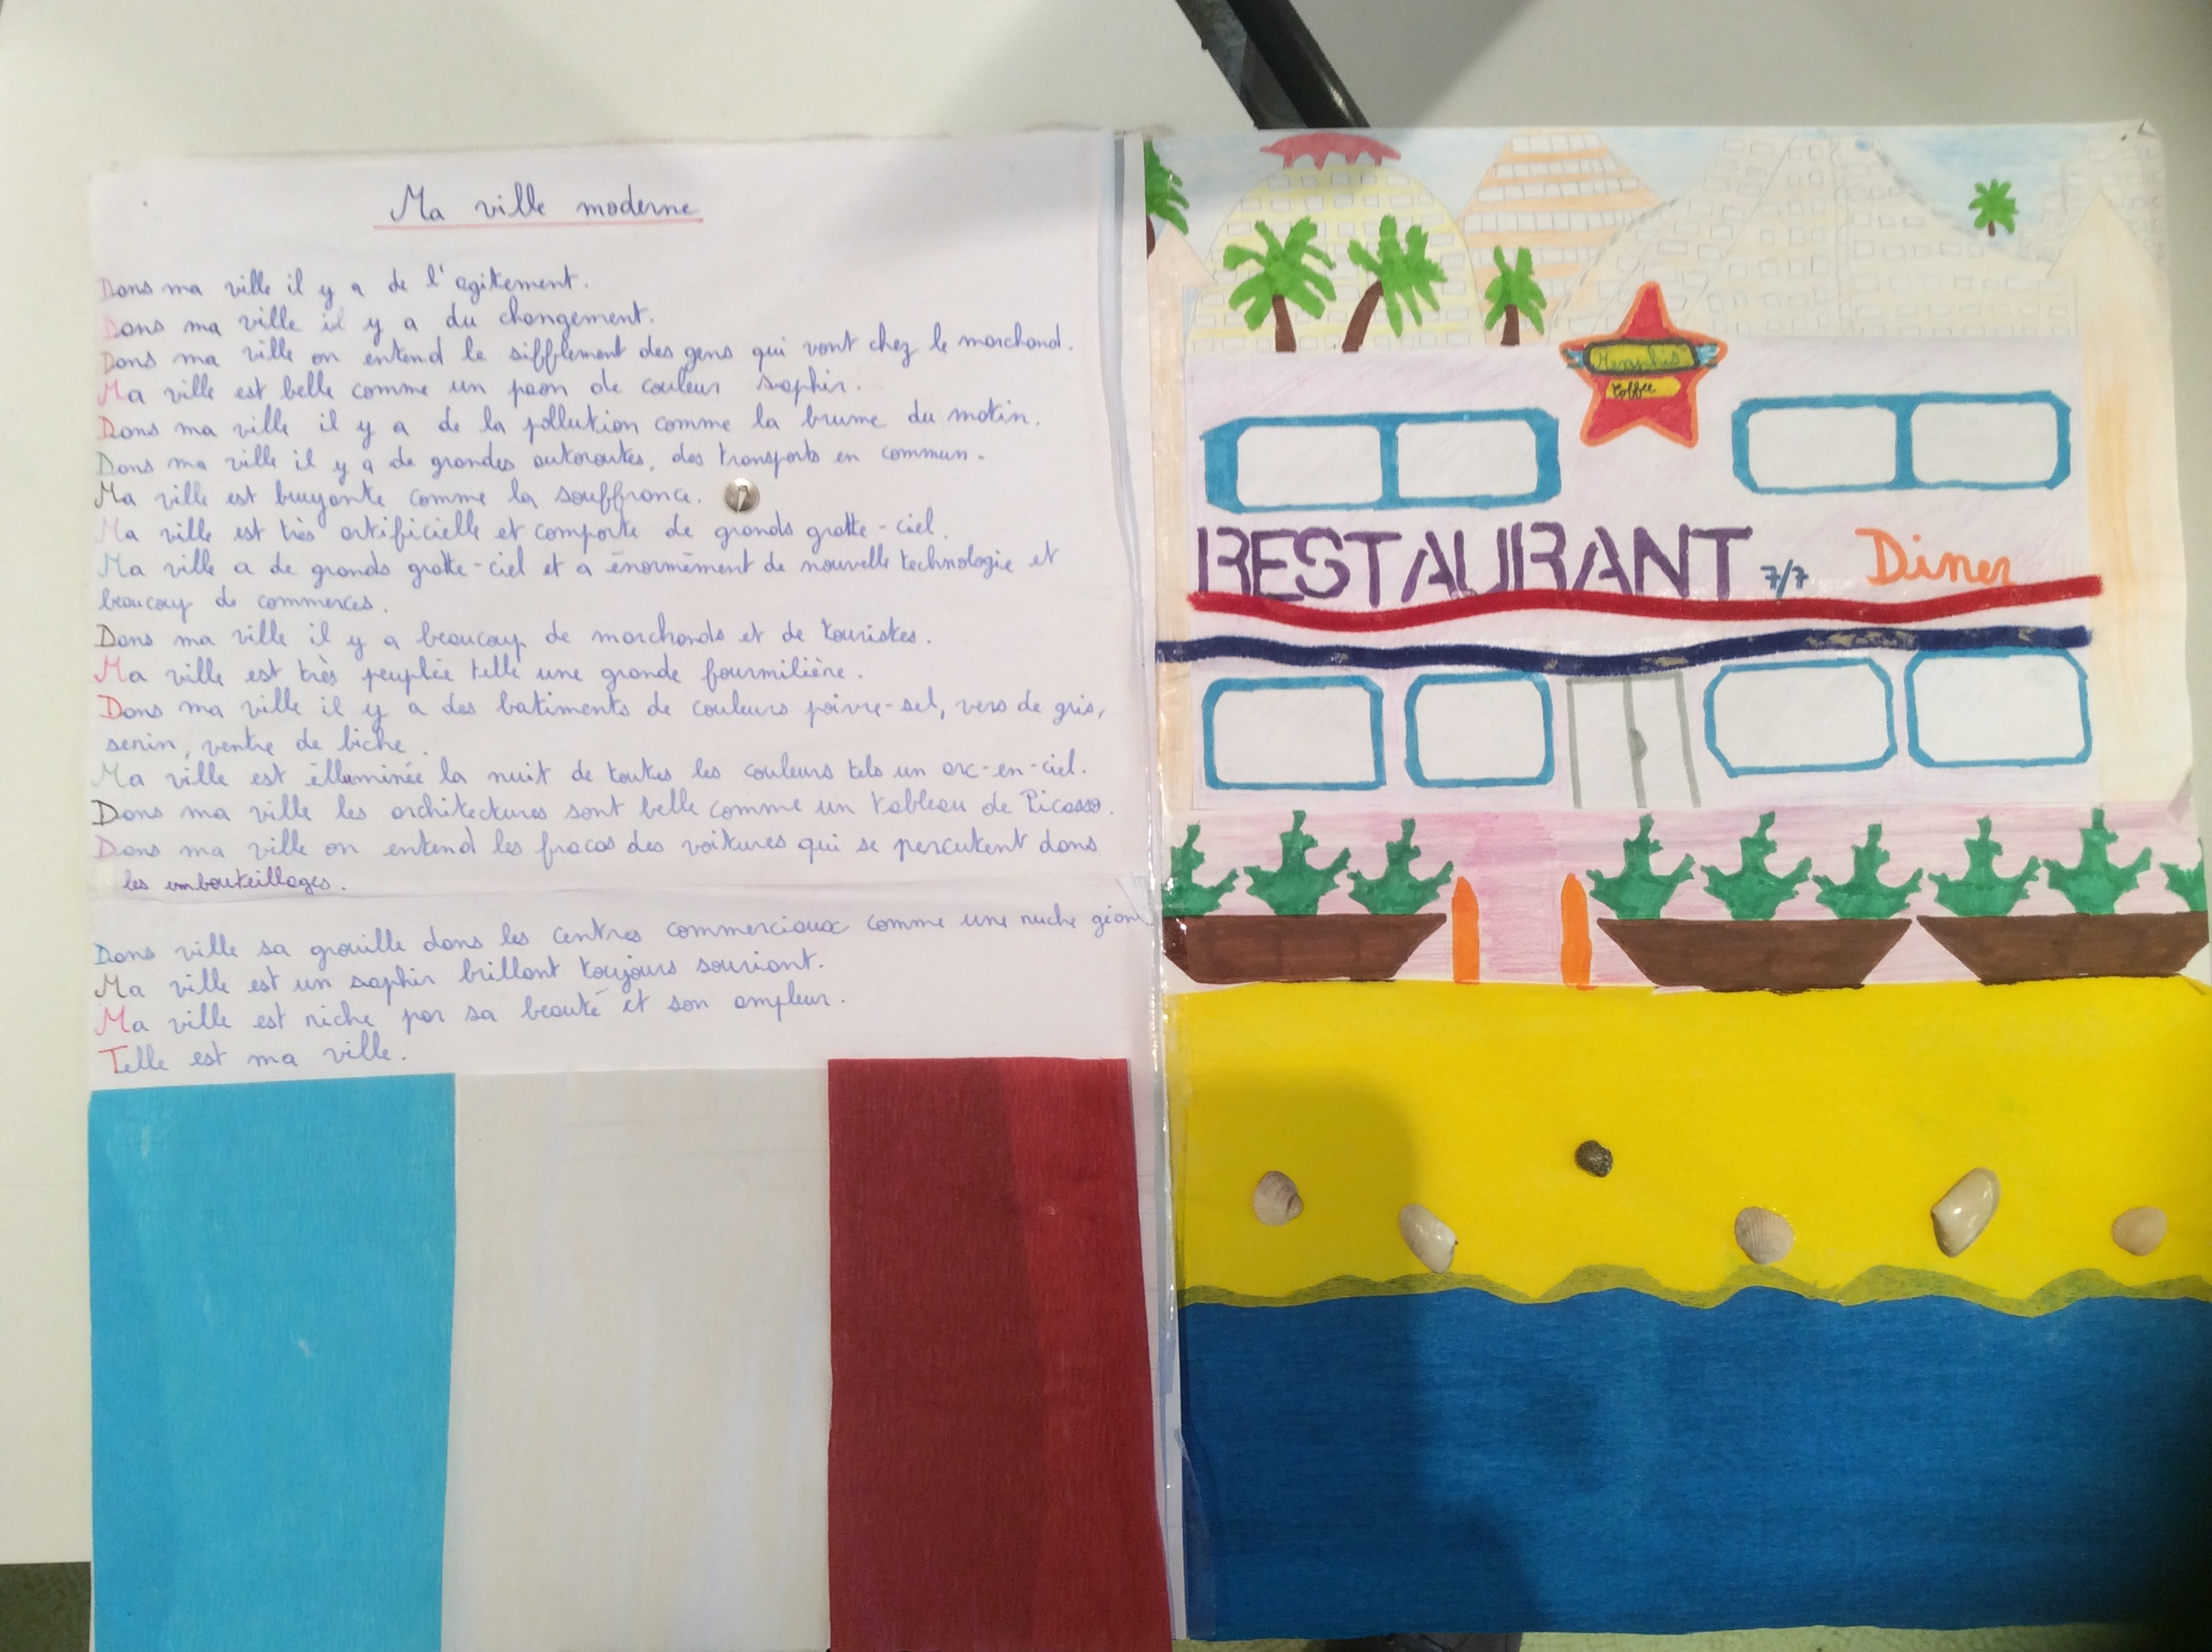 Ma ville moderne
Dans ma ville il y a de l'agitement.
Dans ma ville il y a du changement.
Dans ma ville on entend le sifflement des gens qui vont chez le marchand.
Ma ville est belle comme un paon de couleur saphir.
Dans ma ville il y a de la pollution comme la brume du matin.
Dans ma ville il y a de grandes autoroutes, des transports en commun.
Ma ville est bruyante comme la souffrance.
Ma ville est très artificielle et comporte de grands gratte-ciel.
Ma ville a de grands gratte-ciel et a énormément de nouvelle technologie et
beaucoup de commerces.
Dans ma ville il y a beaucoup de marchands et de touristes.
Ma ville est très peuplée telle une grande fourmilière.
Dans ma ville il y a des batiments de couleurs poivre-sel, vers de gris,
serin, ventre de biche.
Ma ville est élluminée la nuit de toutes les couleurs tels un arc-en-ciel.
Dans ma ville les architectures sont belle comme un tableau de Picasso.
Dans ma ville on entend les fracas des voitures qui se percutent dans
les embouteillages.
Dans ville sa grouille dans les centres commerciaux comme une ruche
Ma ville est un saphir brillant toujours souriant.
Ma ville est riche par sa beauté et son ampleur.
Telle est ma ville.
Memphis
Coffee
RESTAURANT 7/7 Diner